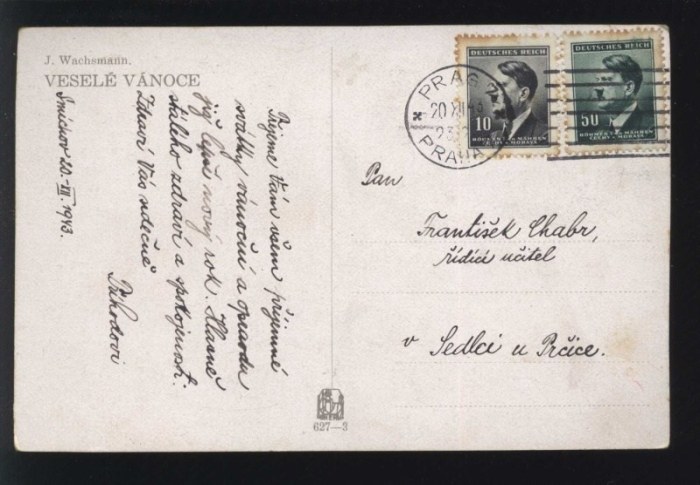 J. Wachsmann.
VESELÉ VÁNOCE
Smíchov 20.-XII. 1943.
Přejeme Vám všem příjemné
svátky vánoční a opravdu
již lepší nový rok. Hlavně
stálého zdraví a spokojnosti.
Zdraví Vás srdečně
Příhodovi
DEUTSCHES REICH
10
BÖHMEN UND MÄHREN
ČECHY A MORAVA
DEUTSCHES REICH
50
BÖHMEN UND MÄHREN
ČECHY A MORAVA
PRAG
20 XII 43
PRAHA
Pan
František Chabr,
řídící učitel
v Sedlci u Prčice.
627—3